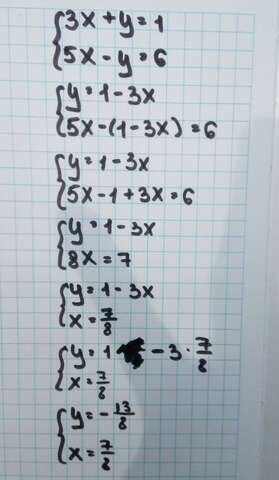 3x + y = 1
5x - y = 6
y = 1 - 3x
5x - (1 - 3x) = 6
y = 1 - 3x
5x - 1 + 3x = 6
y = 1 - 3x
8x = 7
y = 1 - 3x
x = 7/8
y = 1 - 3 · 7/8
x = 7/8
y = - 13/8
x = 7/8